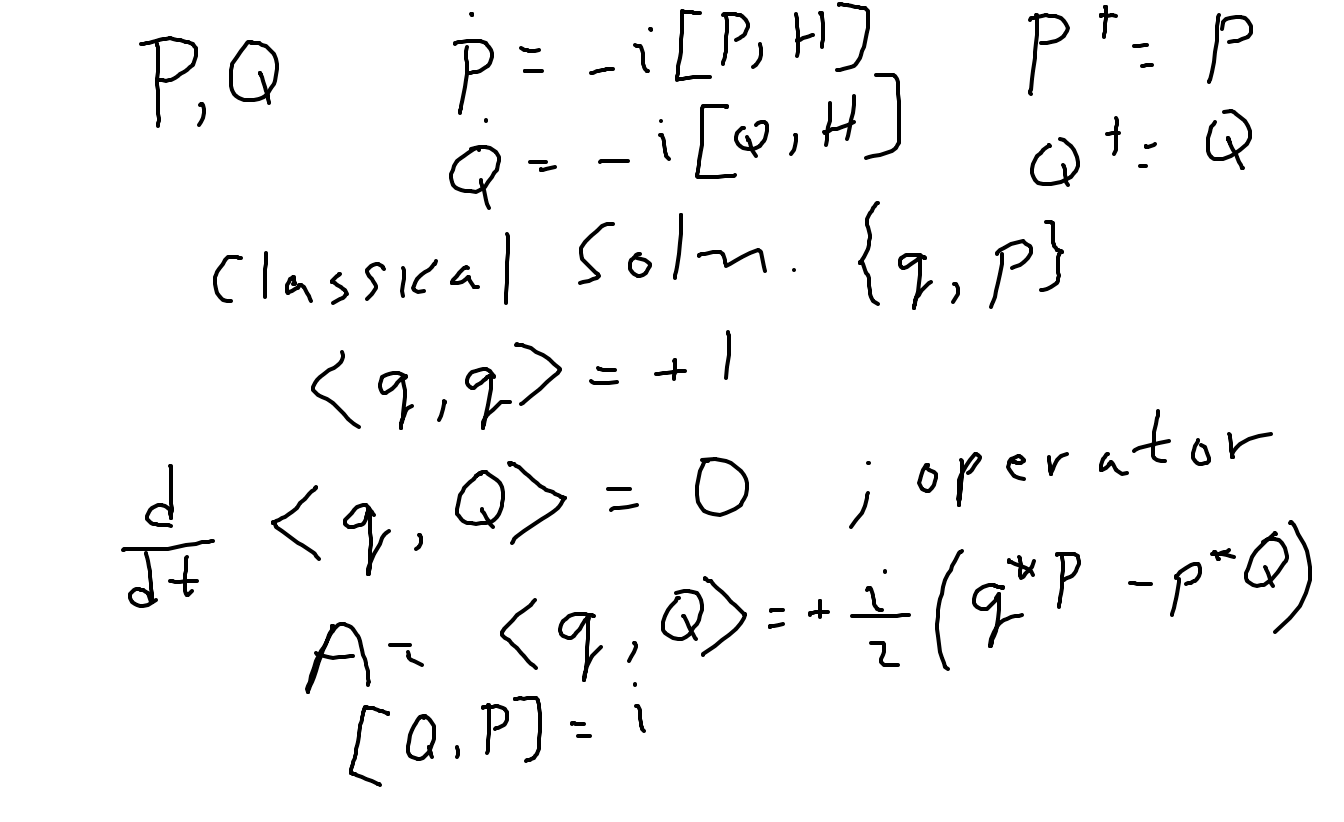 P, Q Ṗ = -i [P, H] P† = P
Q̇ = -i [Q, H] Q† = Q
Classical Soln. {q, p}
<q, q> = +1
d/dt <q, Q> = 0 ; operator
A = <q, Q> = + i/2 (q*P - p*Q)
[Q, P] = i